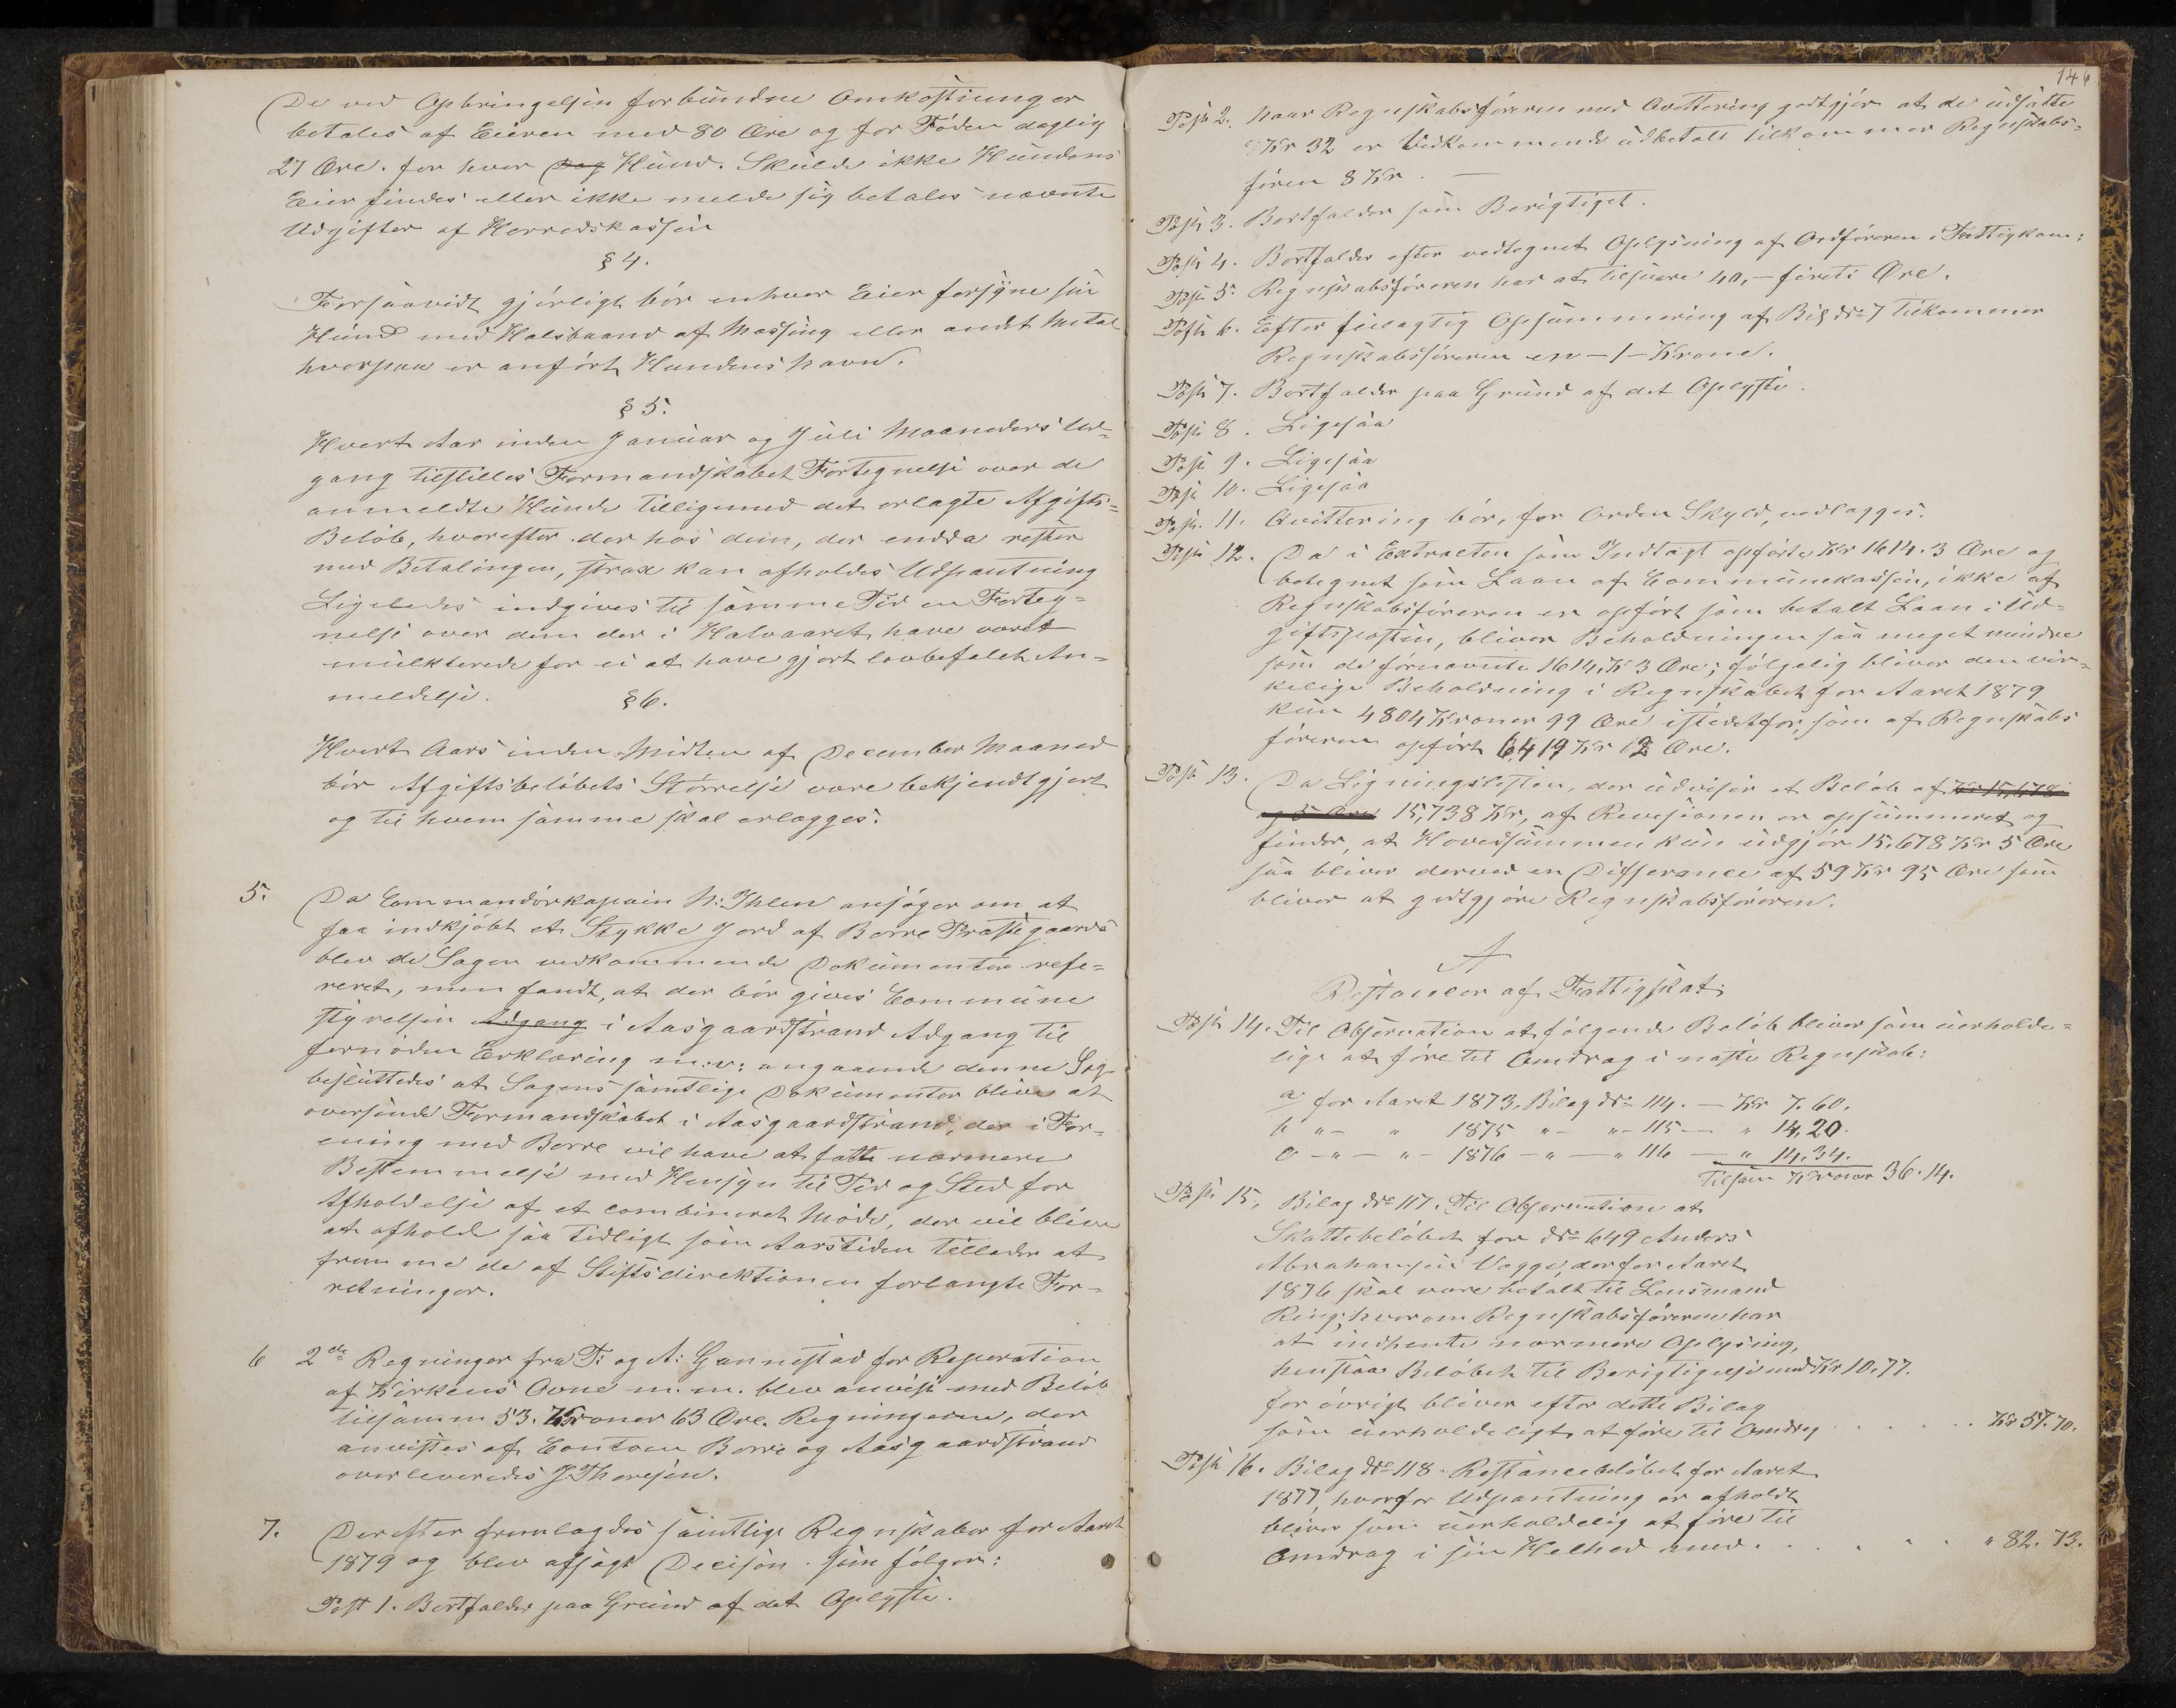 De ved Opbringelsen forbundne Omkostninger
betales af Eieren med 80 Øre og for Føden daglig
27 Øre. for hver Dag Hund. Skulde ikke Hundens
Eier findes eller ikke melde sig betales nævnte
Udgifter af Herredskassen
§ 4.
Forsaavidt gjørligt bør enhver Eier forsyne sin
Hund med Halsbaand af Messing eller andet Metal
hvorpaa er anført Hundens Navn.
§ 5.
Hvert Aar inden Januar og Juli Maaneders Ud-
gang tilstilles Formandskabet Fortegnelse over de
anmeldte Hunde tilligemed det erlagte Afgifts-
Beløb, hvorefter der hos dem, der endda rester
med Betalingen, strax kan afholdes Udpantning
Ligeledes indgives til samme Tid en Forteg-
nelse over dem der i Halvaaret have været
mulkterede for ei at have gjort lovbefalet An-
meldelse.
§ 6.
Hvert Aars inden Midten af December Maaned
bør Afgiftsbeløbets Størrelse være bekjendtgjort
og til hvem samme skal erlægges.
5. Da Commandørkaptein N: Ihlen ansøger om at
faa indkjøbt et Stykke Jord af Borre Præstegaard
blev de Sagen vedkommende Dokumenter refe-
reret, men fandt, at der bør gives Commune
styrelsen Adgang i Aasgaardstrand Adgang til
fornøden Erklæring m.v: angaaende denne Sag
besluttedes at Sagens samtlige Dokumenter blive at
oversende Formandskabet i Aasgaardstrand, der i For-
ening med Borre vil have at fatte nærmere
Bestemmelse med Hensyn til Tid og Sted for
Afholdelse af et combineret Møde, der vil blive
at afholde saa tidligt som Aarstiden tillader at
fremme de af Stiftsdirektionen forlangte For-
retninger.
6 2de Regninger fra T: og A: Gannestad for Reperation
af Kirkens Ovne m.m. blev anvist med Beløb
tilsamm 53. Kroner 63 Øre. Regningerne, der
anvistes af Contoen Borre og Aasgaardstrand
overleveredes J. Thoresen.
7. Derefter fremlagdes samtlige Regnskaber for Aaret
1879 og blev afsagt Decision som følger:
Post 1. Bortfalder paa Grund af det Oplyste.
146
Post 2. Naar Regnskabsføreren med Qvittering godtgjør at de udsatte
Kr 32 er Vedkommende udbetalt tilkommer Regnskabs-
føren 8 Kr. —
Post 3. Bortfalder som Berigtiget.
Post 4. Bortfalder efter vedtegnet Oplysning af Ordføreren i Fattigkom:
Post 5. Regnskabsføreren har at tilsvare 40,— fireti Øre.
Post 6. Efter feilagtig Opsummering af Bil No 7 tilkommer
Regnskabsføreren en — 1 — Krone.
Post 7. Bortfalder paa Grund af det Oplyste.
Post 8. Ligesaa
Post 9. Ligesaa
Post 10. Ligesaa
Post. 11. Qvittering bør, for Orden Skyld, vedlægges.
Post 12. Da i Extracten som Indtægt opførte Kr 1614. 3 Øre og
betegnet som Laan af Communekassen, ikke af
Regnskabsføreren er opført som betalt Laan i Ud-
giftsposten, bliver Beholdningen saa meget mindre
som de førnævnte 1614, Kr 3 Øre; følgelig bliver den vir-
kelige Beholdning i Regnskabet for Aaret 1879
kun 4804 Kroner 99 Øre istedetfor, som af Regnskabs
føreren opført 6,419 Kr 2 Øre.
Post 13. Da Ligningslisten, der udviser et Beløb af Kr 15,678
og 5 Øre 15,738 Kr, af Revisionen er opsummeret og
finder, at Hovedsummen kun udgjør 15.678 Kr 5 Øre
saa bliver derved en Differance af 59 Kr 95 Øre som
bliver at godtgjøre Regnskabsføreren.
A
Restancer af Fattigskat:
Post 14. Til Observation at følgende Beløb bliver som uerholde-
lige at føre til Omdrag i næste Regnskab:
a for Aaret 1873, Bilag No 114. — Kr 7. 60.
b " — " 1875 " — " — 115 — " 14, 20.
c — " — " — 1876 — " — " 116 — " 14. 34.
Tilsam Kroner 36. 14.
Post. 15. Bilag No 117. Til Observation at
Skattebeløbet for No 649 Anders
Abrahamsen Vagge, der for Aaret
1876 skal være betalt til Lensmand
Ring; hvorom Regnskabsføreren har
at indhente nærmere Oplysning,
henstaar Beløbet til Berigtigelse med Kr 10. 77.
for øvrigt bliver efter dette Bilag
som uerholdeligt at føre til Omdrag . . . . . . Kr 57. 70.
Post 16. Bilag No 118. Restancebeløbet for Aaret
1877, hvorfor Udpantning er afholdt
bliver som uerholdelig at føre til
Omdrag i sin Helhed med . . . . . " 82. 73.